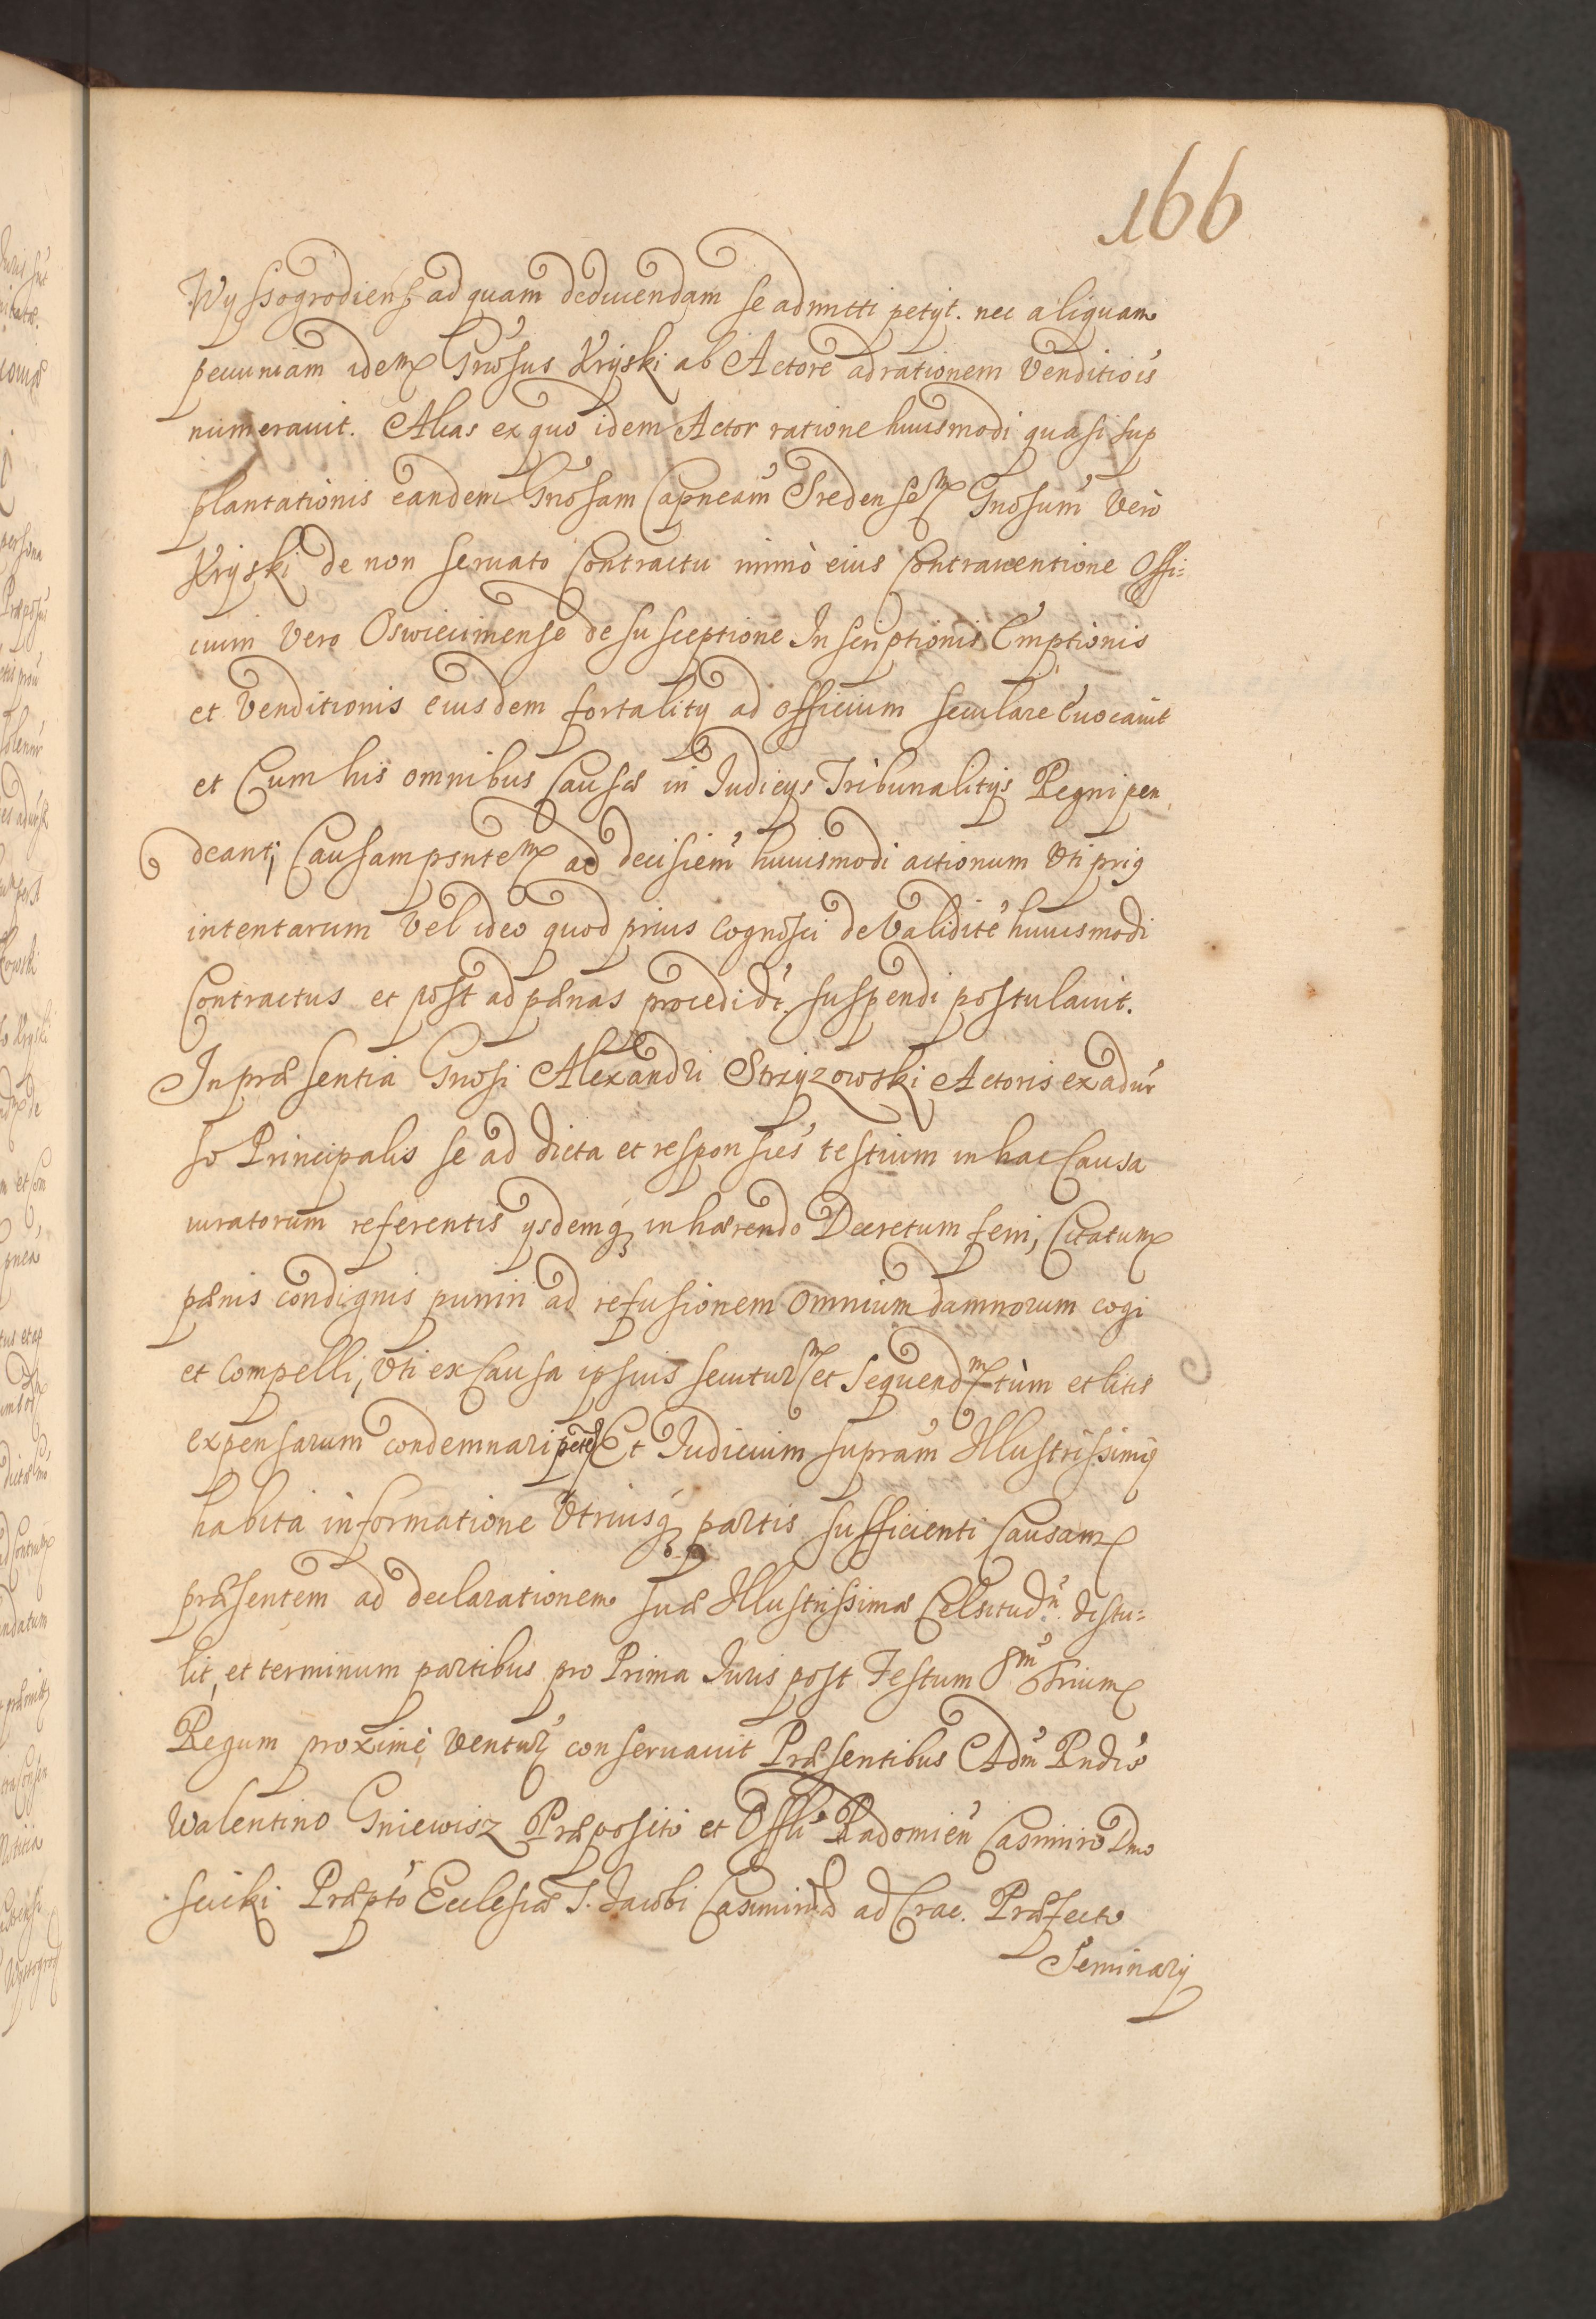 166
Wyssogrodiens ad quam deducendam se admitti petyt. nec aliquam
pecuniam idem Gnosus Kryski ab Actore ad rationem Venditiois
numerauit. Alias ex quo idem Actor ratione huiusmodi quasi sup
plantationis eandem Gnosam Capneam Sredensem Gnosum Vero
Kryski de non seruato Contractu immò eius Contrauentione Offi:
cium Vero Oswiecimense de susceptione Inscriptionis Emptionis
et Venditionis eiusdem fortality ad officium seculare Euocauit
et Cum his omnibus Causæ in Judicys Tribunalitys Regni pen,
deant; Causam psntem ad decisiem huiusmodi actionum Vti prig
intentarum Vel ideo quod prius Cognosci de Validite huiusmodi
Contractus et post ad pænas procedi dt. suspendi postulauit.
In præsentia Gnosi Alexandri Strzyzowski Actoris ex adur
so Principalis se ad dicta et responsies testium in hac Causa
iuratorum referentis ysdemq inhærendo Decretum ferri, Citatum
pænis condignis puniri ad refusionem omnium damnorum cogi
et Compelli, Vti ex Causa ipsius secutur et sequend tùm et litis
expensarum condemnari peten Et Judicium supram Illustrissimg
habita informatione Vtriusq partis sufficienti Causam
præsentem ad declarationem suæ Illustrissimæ Celsitudn distu:
lit, et terminum partibus pro Prima Juris post Festum Sm Trium
Regum proximè Ventur conseruauit Præsentibus Adm Rndis
Walentino Gniewisz Præposito et Offli Radomien Casimiro Dmo
scicki Præpto Ecclesiæ S. Jacobi Casimiriæ ad Crac. Præfecto
Seminary